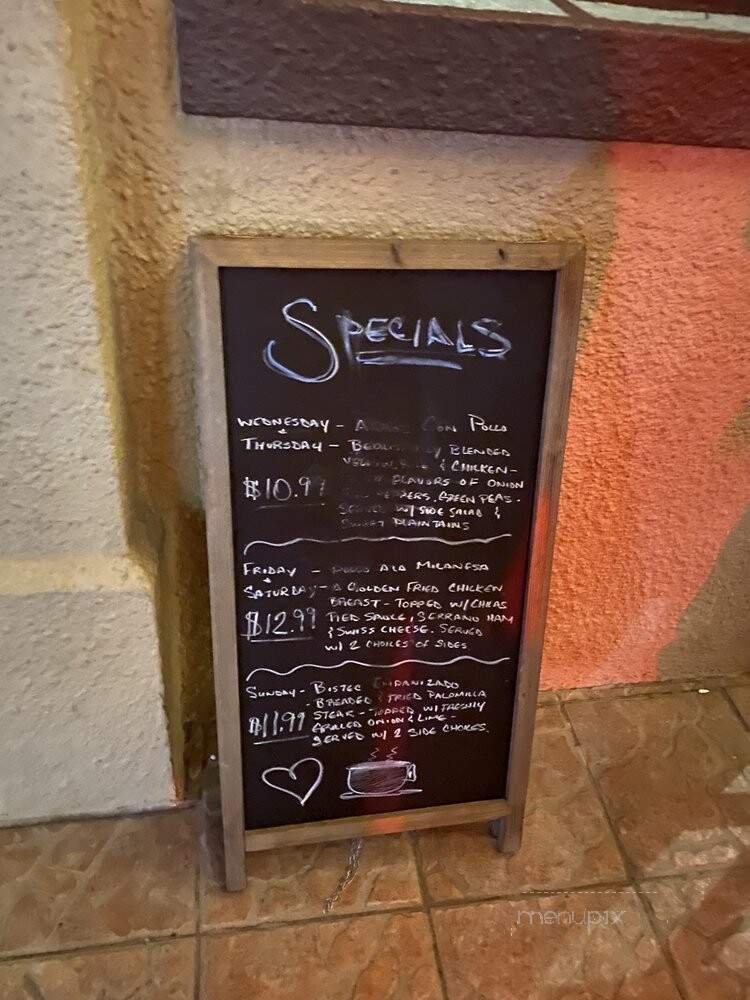 SPECIALS
WEDNESDAY - CON POLLO
THURSDAY - BLENDED
& CHICKEN -
$10.99 FLAVORS OF ONION
PEPPERS. GREEN PEAS.
SERVED W/ SIDE SALAD &
SWEET PLAINTAINS
FRIDAY - POLLO ALA MILANESA
SATURDAY - A GOLDEN FRIED CHICKEN
BREAST - TOPPED W/
$12.99 SAUCE, SERRANO HAM
& SWISS CHEESE. SERVED
W/ 2 CHOICES OF SIDES
SUNDAY - BISTEC EMPANIZADO
- BREADED & FRIED PALOMILLA
$11.99 STEAK - TOPPED W/ FRESHLY
GRILLED ONION & LIME -
SERVED W/ 2 SIDE CHOICES.
menupix